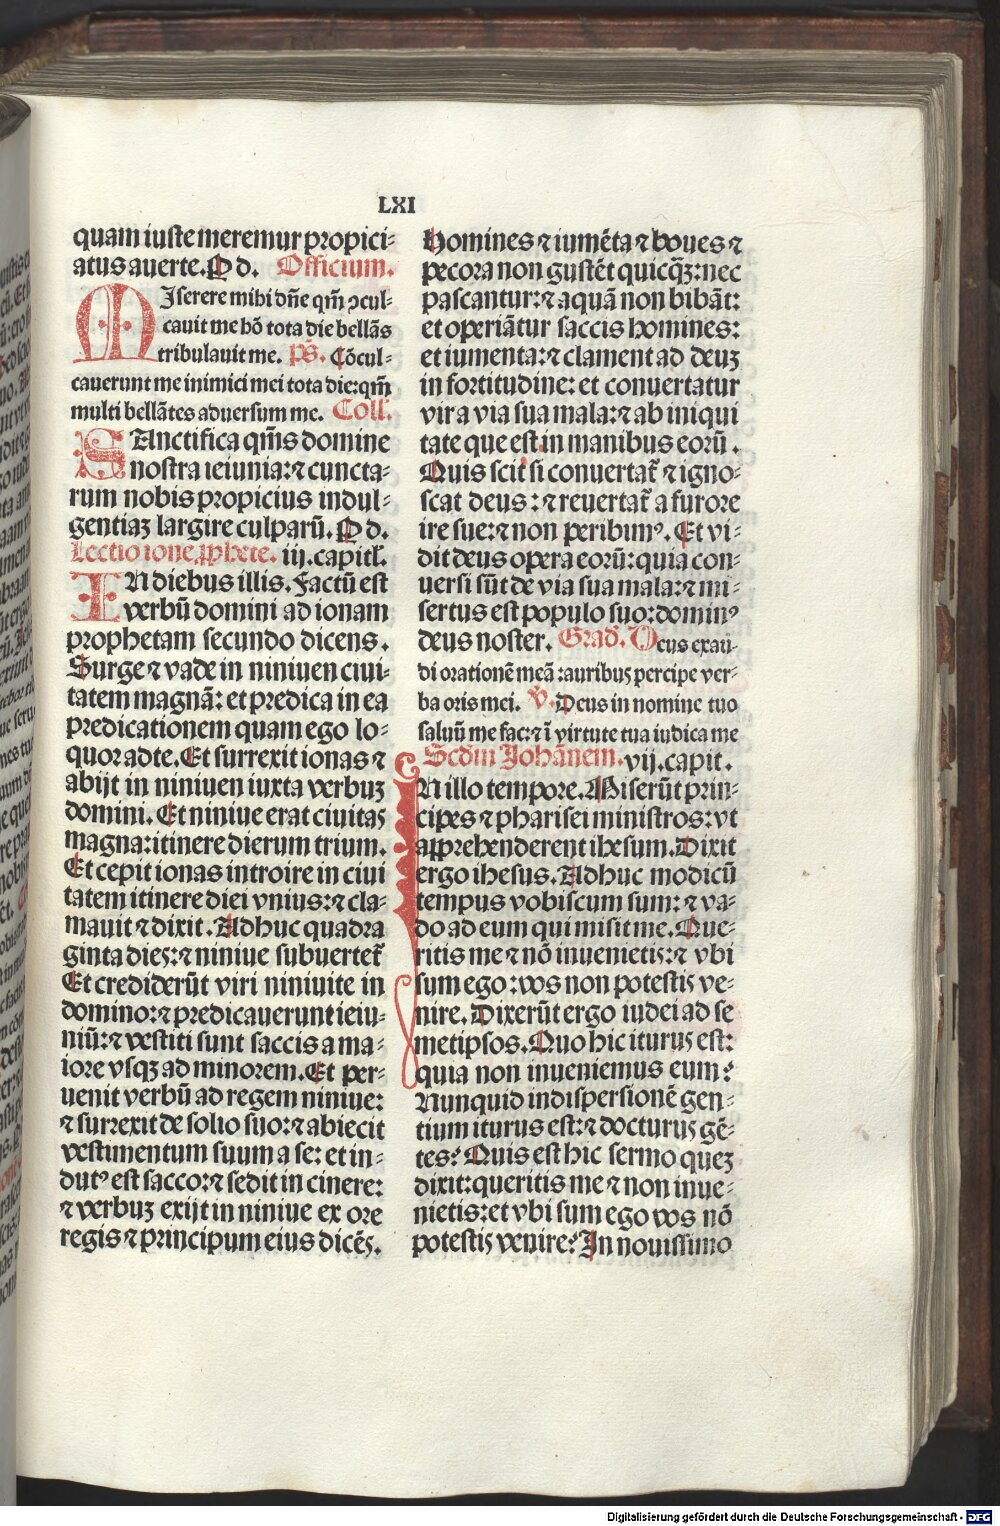 LXI
quam iuste meremur propici⸗
atus auerte. P d. Officium.
MIserere mihi dn̄e qm̄ ꝯcul⸗
cauit me hō tota die bellās
tribulauit me. p̄s. Cōcul⸗
cauerunt me inimici mei tota die: qm̄
multi bellātes aduersum me. Coll.
SAnctifica qm̄s domine
nostra ieiunia: ⁊ cuncta⸗
rum nobis propicius indul⸗
gentiaꝫ largire culparū. P d.
Lectio ione ꝓphete. iij. capitl.
IN diebus illis. Factū est
verbū domini ad ionam
prophetam secundo dicens.
Surge ⁊ vade in niniuen ciui⸗
tatem magnā: et predica in ea
predicationem quam ego lo⸗
quor ad te. Et surrexit ionas ⁊
abijt in niniuen iuxta verbuꝫ
domini. Et niniue erat ciuitas
magna: itinere dierum trium.
Et cepit ionas introire in ciui
tatem itinere diei vnius: ⁊ cla⸗
mauit ⁊ dixit. Adhuc quadra
ginta dies: ⁊ niniue subuertet᷑
Et crediderūt viri niniuite in
domino: ⁊ predicauerunt ieiu⸗
niū: ⁊ vestiti sunt saccis a ma⸗
iore vsqꝫ ad minorem. Et per⸗
uenit verbū ad regem niniue:
⁊ surrexit de solio suo: ⁊ abiecit
vestimentum suum a se: et in⸗
dutꝰ est sacco: ⁊ sedit in cinere:
⁊ verbuꝫ exijt in niniue ex ore
regis ⁊ principum eius dicēs.
Homines ⁊ iumēta ⁊ boues ⁊
pecora non gustēt quicqꝫ: nec
pascantur: ⁊ aquā non bibāt:
et operiātur saccis homines:
et iumenta: ⁊ clament ad deuꝫ
in fortitudine: et conuertatur
vir a via sua mala: ⁊ ab iniqui
tate que est in manibus eorū.
Quis scit si conuertat᷑ ⁊ igno⸗
scat deus: ⁊ reuertat᷑ a furore
ire sue: ⁊ non peribimꝰ. Et vi⸗
dit deus opera eorū: quia con⸗
uersi sūt de via sua mala: ⁊ mi⸗
sertus est populo suo: dominꝰ
deus noster. Grad. Deus exau⸗
di orationē meā: auribus percipe ver⸗
ba oris mei. V̄. Deus in nomine tuo
saluū me fac: ⁊ ī virtute tua iudica me
Scdm̄ Johānem. vij. capit.
IN illo tempore. Miserūt prin⸗
cipes ⁊ pharisei ministros: vt
apprehenderent ihesum. Dixit
ergo ihesus. Adhuc modicū
tempus vobiscum sum: ⁊ va⸗
do ad eum qui misit me. Que⸗
ritis me ⁊ nō inuenietis: ⁊ vbi
sum ego: vos non potestis ve⸗
nire. Dixerūt ergo iudei ad se
metipsos. Quo hic iturus est:
quia non inueniemus eum?
Nunquid in dispersionē gen⸗
tium iturus est: ⁊ docturus gē⸗
tes? Quis est hic sermo queꝫ
dixit: queritis me ⁊ non inue⸗
nietis: et vbi sum ego vos nō
potestis venire? In nouissimo
Digitalisierung gefördert durch die Deutsche Forschungsgemeinschaft - DFG